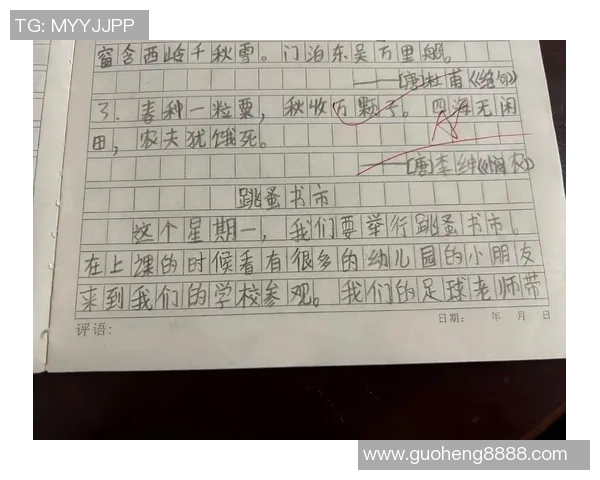 TG: MYYJJPP
窗含西岭千秋雪。门泊东吴万里船。
——[唐]杜甫《绝句》
3. 春种一粒粟，秋收万颗子。四海无闲
田，农夫犹饿死。
——[唐]李绅《悯农》
跳蚤书市
这个星期一，我们要举行跳蚤书市。
在上课的时候看有很多的幼儿园的小朋友
来到我们的学校参观。我们的足球老师带
评语：
日期： 年 月 日
www.guoheng8888.com